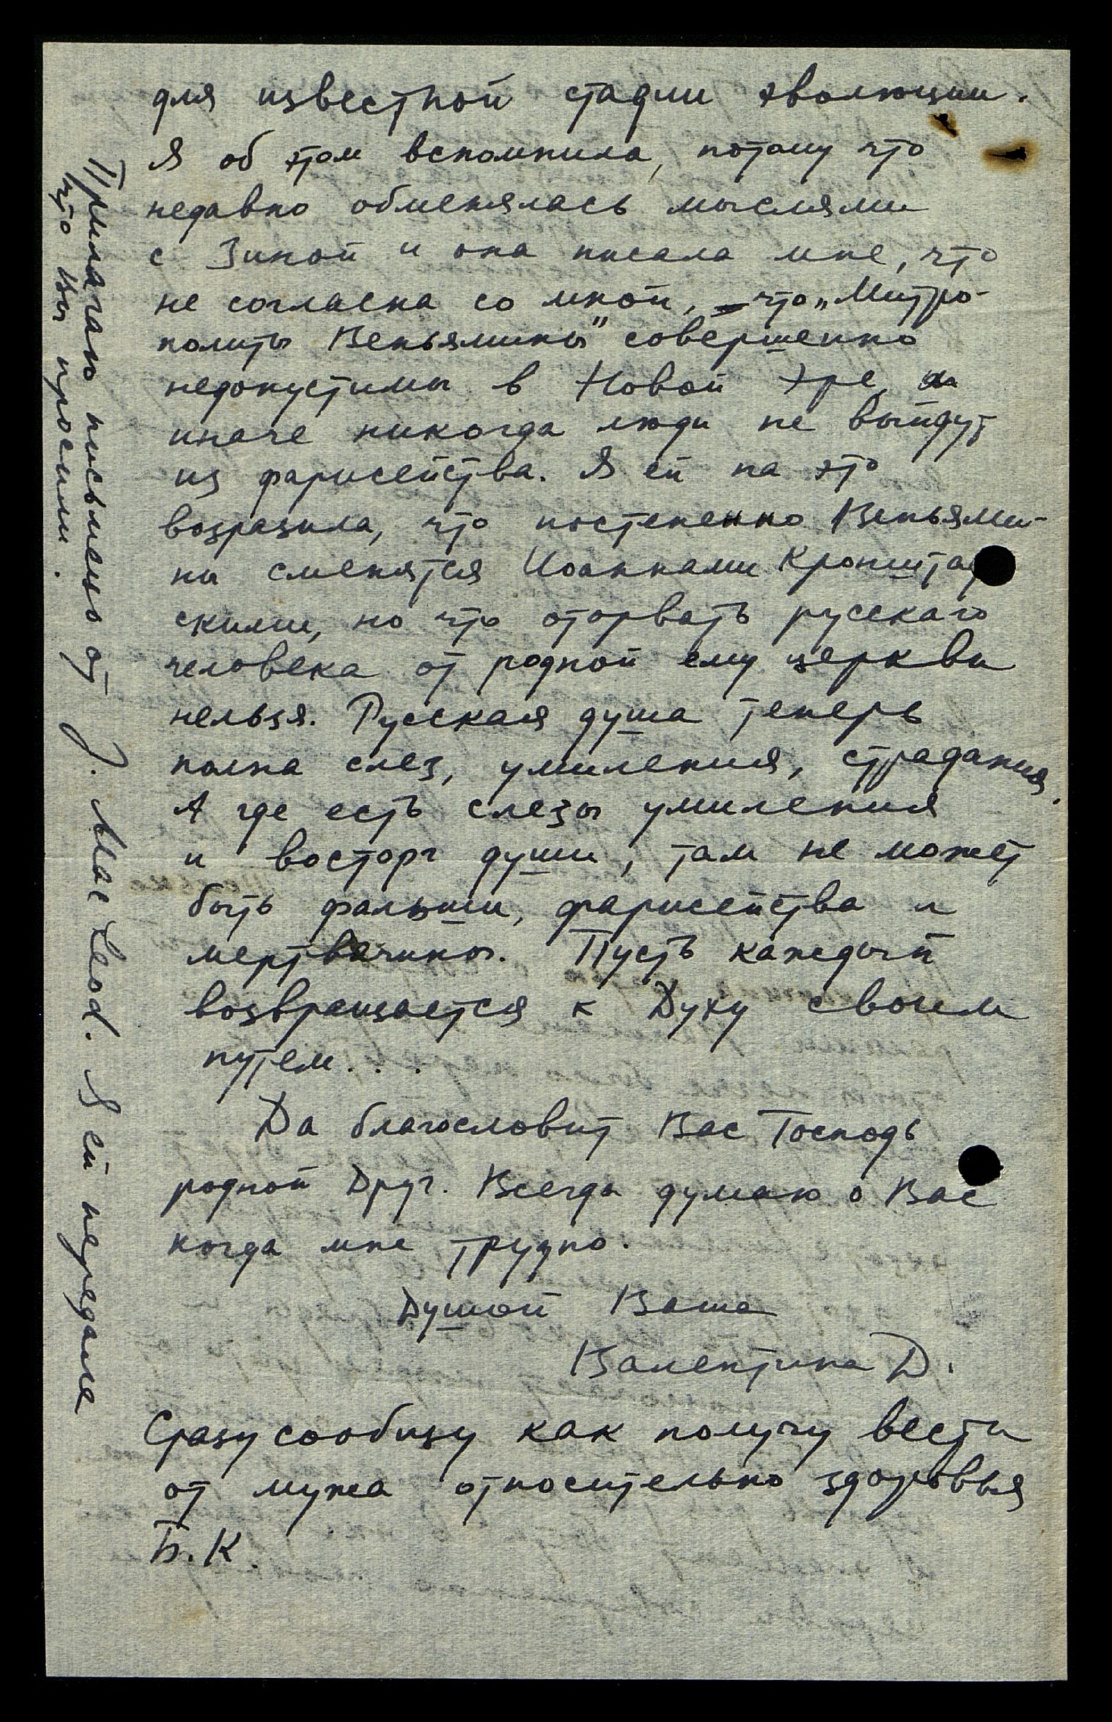 для известной стадии эволюции.
Я об этом вспомнила, потому что
недавно обменялась мыслями
с Зиной и она писала мне, что
не согласна со мной, – что „Митро-
политы Веньямины" совершенно
недопустимы в Новой Эре,
иначе никогда люди не выйдут
из фарисейства. Я ей на это
возразила, что постепенно Веньями-
ны сменятся Иоаннами Кронштад
скими, но что оторвать русскаго
человека от родной ему церкви
нельзя. Русская душа теперь
полна слез, умиления, страдания.
А где есть слезы умиления
и восторг души, там не может
быть фальши, фарисейства и
мертвячины. Пусть каждый
возвращается к Духу своем
путем...
Да благословит Вас Господь
родной Друг. Всегда думаю о Вас
когда мне трудно.
Душой Ваша
Валентина Д.
Сразу сообщу как получу вести
от мужа относительно здоровья
Б.К.
Прилагаю письмецо от J. Mac Leod. Я ей передала
что Вы просили.